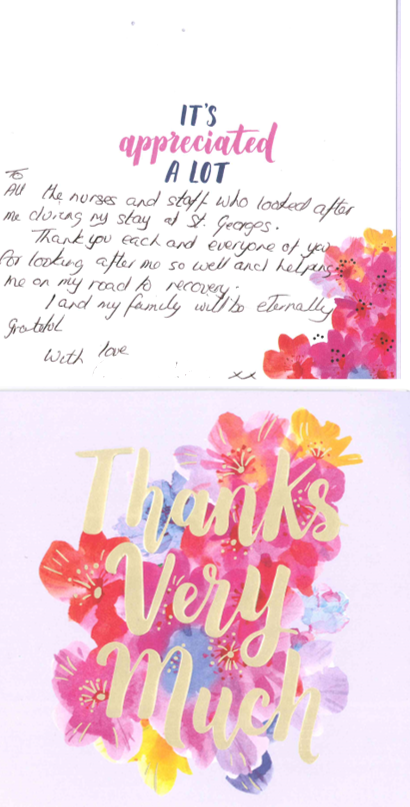 IT'S
appreciated
A LOT
To
All the nurses and staff who looked after
me during my stay at St. Georges.
Thank you each and everyone of you
for looking after me so well and helping
me on my road to recovery.
I and my family will be eternally
grateful
With love
xx
Thanks
Very
Much